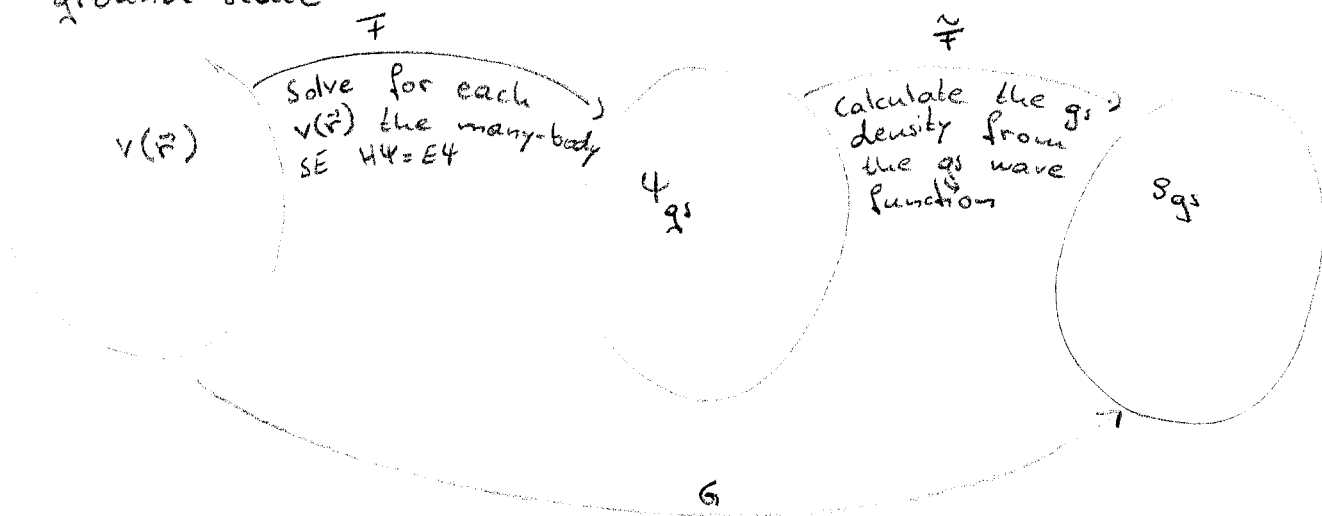 ground state
F F̃
v(r⃗)
Solve for each
v(r⃗) the many-body
SE HΨ=EΨ
Ψgs
Calculate the gs
density from
the gs wave
function
ρgs
G